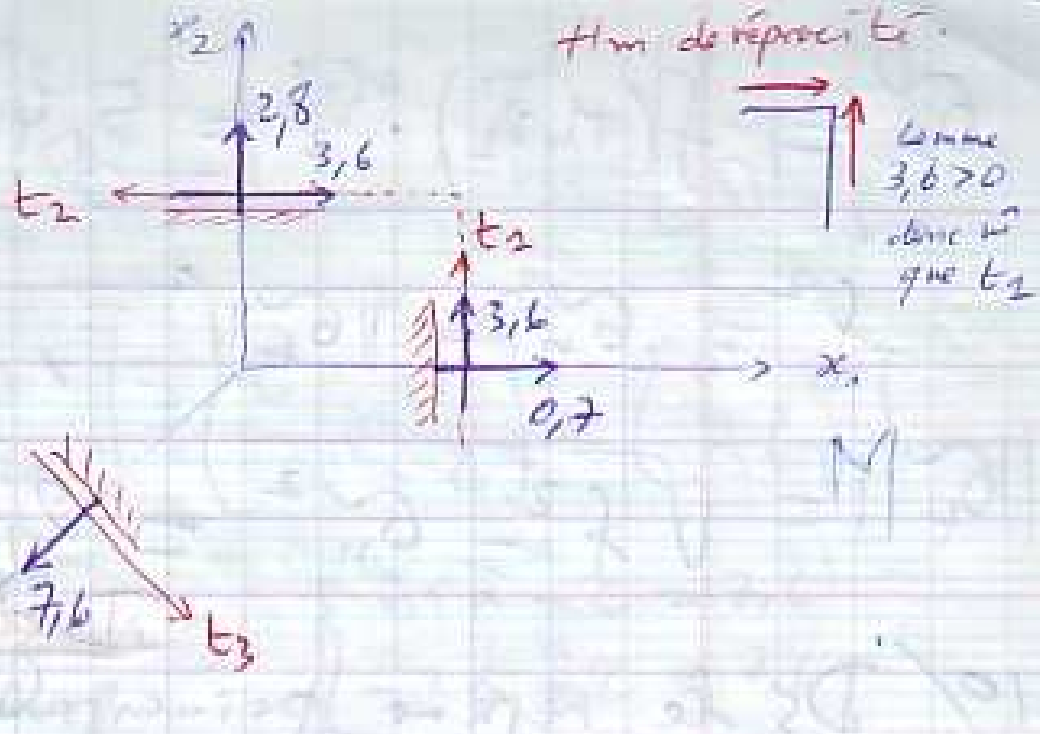 thm de réprocité.
x2
2,8
3,6
t2
comme
3,6 > 0
donc m̂
que t1
t1
3,6
x1
0,7
M
7,6
t3